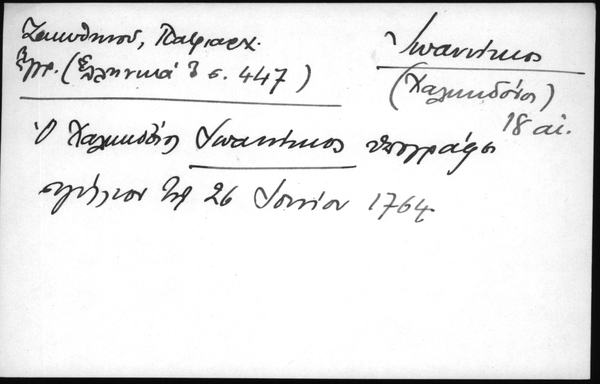 Ζακυθηνού, Πατριαρχ.
Έγγρ. (Ἑλληνικά 3 σ. 447)
Ἰωαννίκιος
(Χαλκηδόνος)
18 αἰ.
Ὁ Χαλκηδόνος Ἰωαννίκιος ὑπογράφει
σιγίλλιον τῇ 26 Ἰουνίου 1764